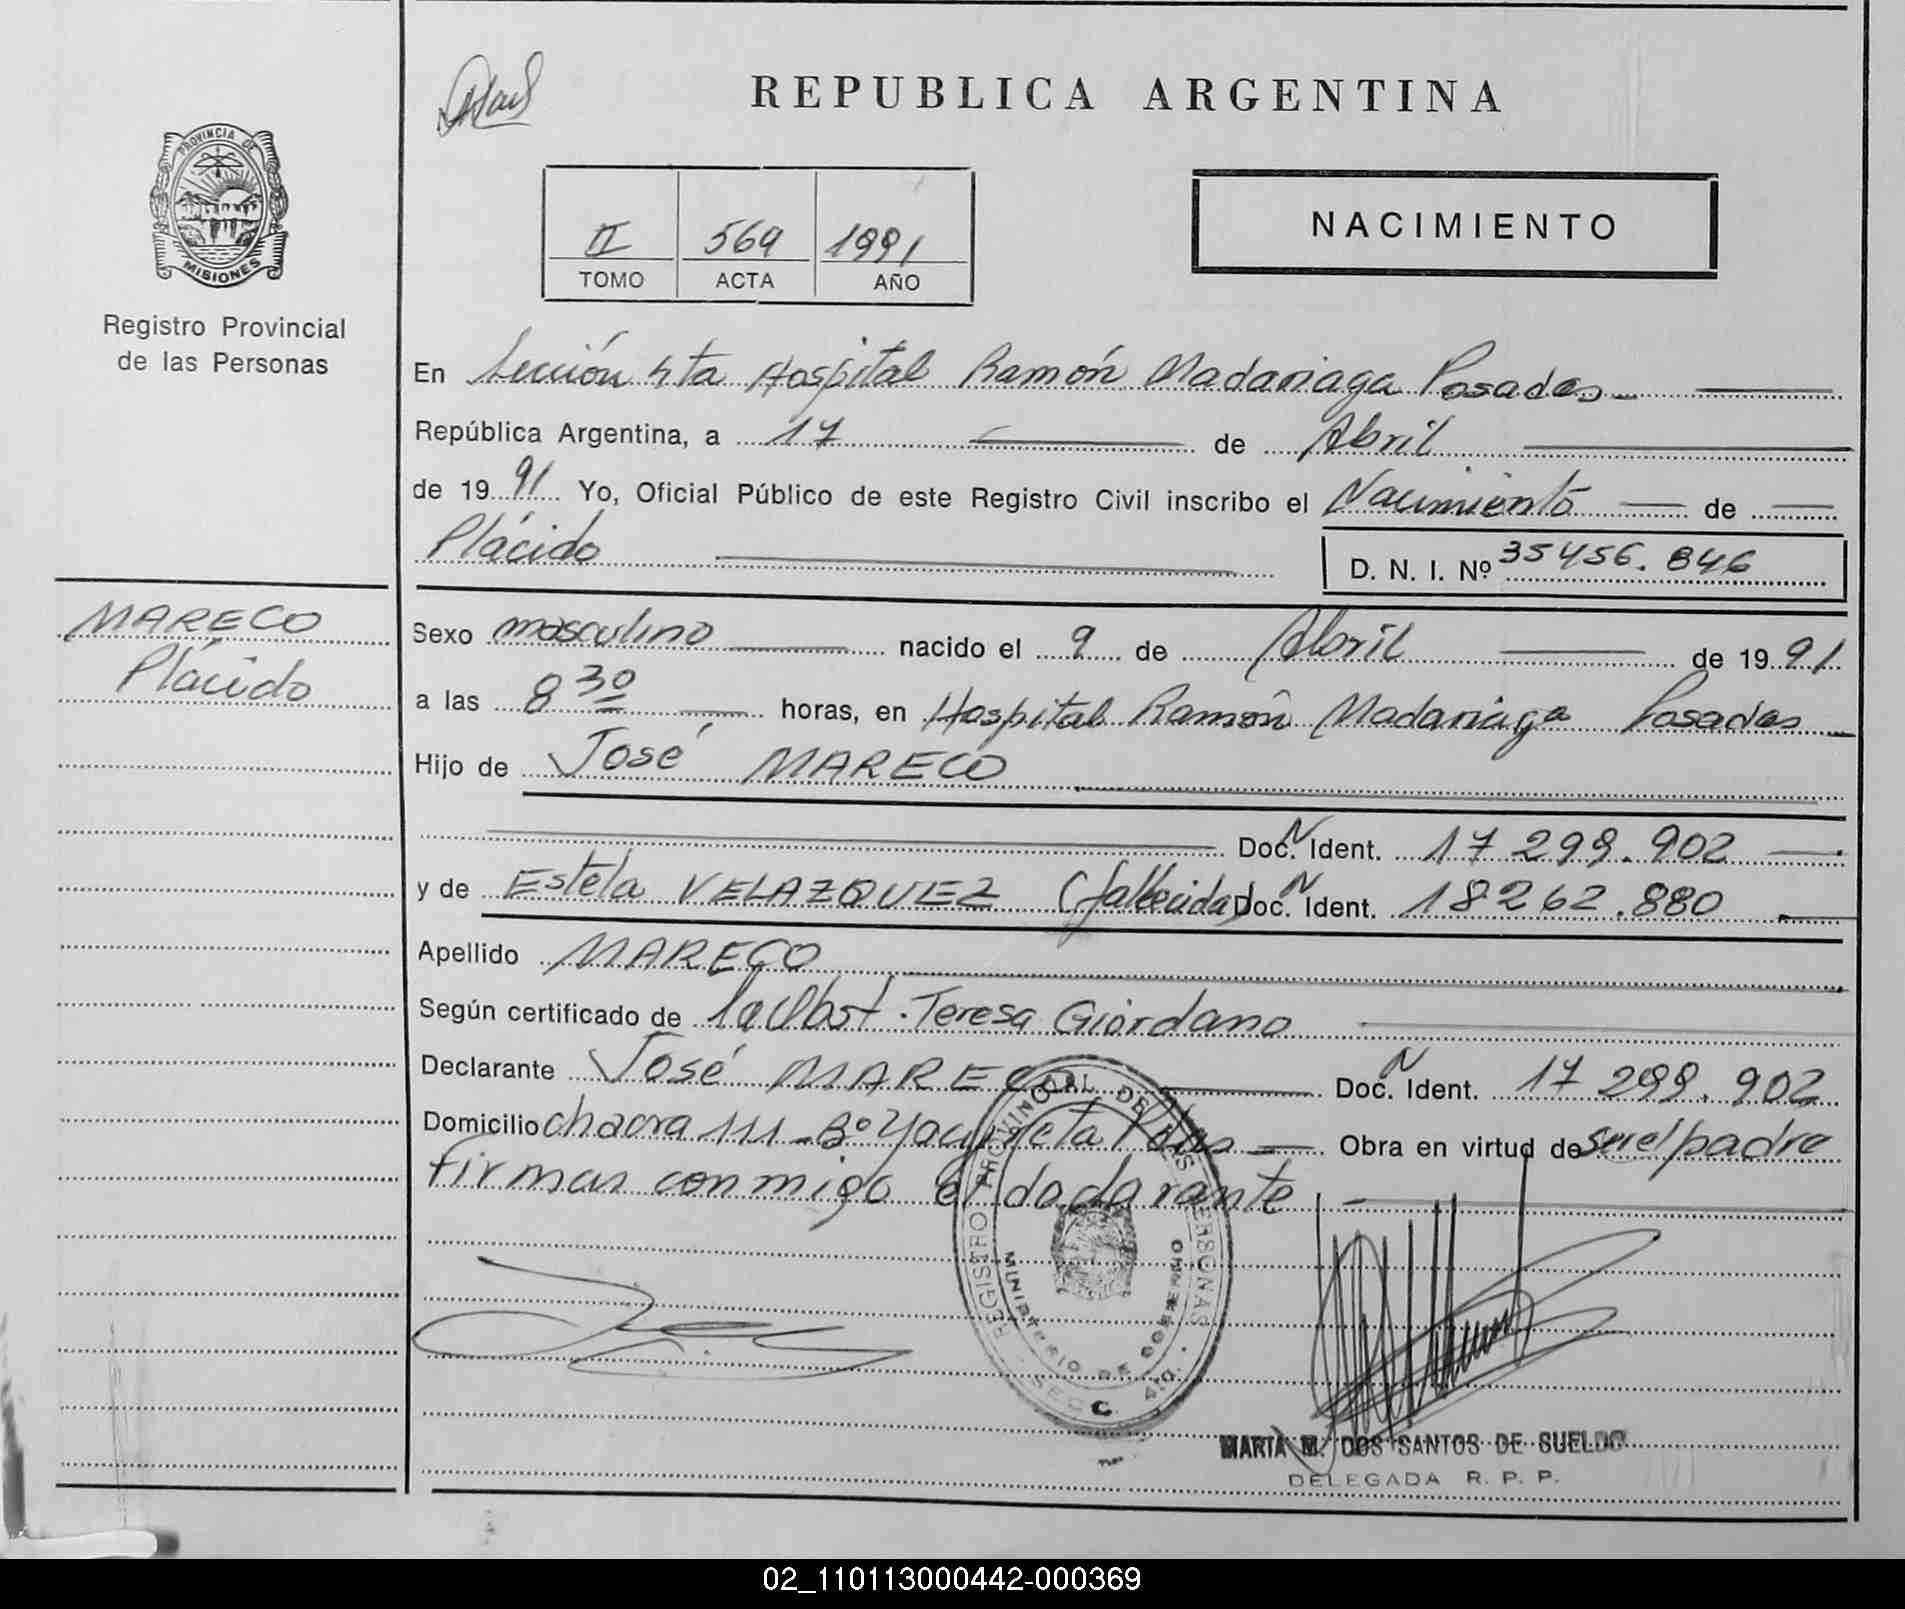 REPUBLICA ARGENTINA
PROVINCIA DE
MISIONES
Registro Provincial
de las Personas
II 569 1991
TOMO ACTA AÑO
NACIMIENTO
En Sección 4ta Hospital Ramón Madariaga Posadas
República Argentina, a 17 de Abril
de 1991 Yo, Oficial Público de este Registro Civil inscribo el Nacimiento de
Plácido
D. N. I. Nº 35456.846
MARECO
Plácido
Sexo masculino nacido el 9 de Abril de 1991
a las 8 30 horas, en Hospital Ramón Madariaga Posadas
Hijo de José MARECO
Doc. N Ident. 17 299.902
y de Estela VELAZQUEZ (fallecida) Doc. N Ident. 18262.880
Apellido MARECO
Según certificado de la Obst. Teresa Giordano
Declarante José MARECO Doc. N Ident. 17 299.902
Domicilio chacra 111 - Bº Yacyreta Pdas Obra en virtud de ser el padre
firman conmigo el dadarante
REGISTRO PROVINCIAL DE LAS PERSONAS
MINISTERIO DE GOBIERNO
SECC. 4a.
MARTA M. DOS SANTOS DE SUELDO
DELEGADA R. P. P.
02_110113000442-000369